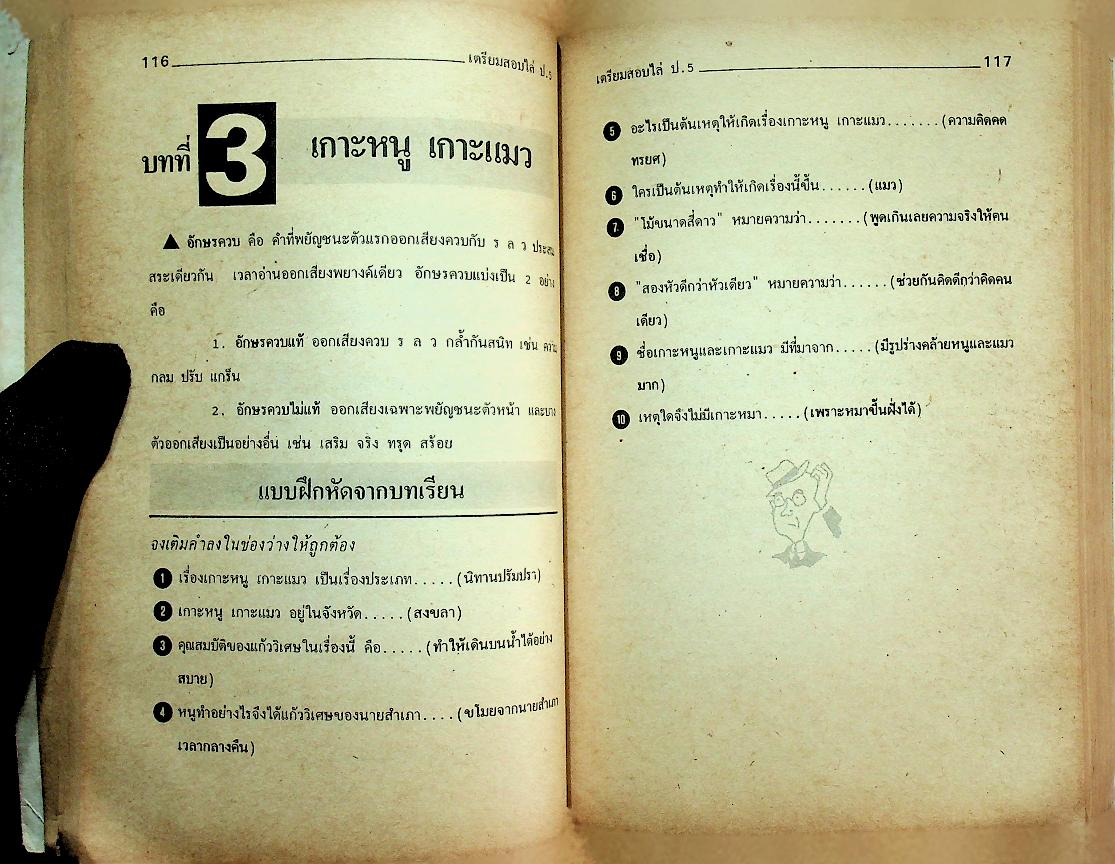 116 เตรียมสอบไล่ ป.5
บทที่ 3 เกาะหนู เกาะแมว
▲ อักษรควบ คือ คำที่พยัญชนะตัวแรกออกเสียงควบกับ ร ล ว ประสม
สระเดียวกัน เวลาอ่านออกเสียงพยางค์เดียว อักษรควบแบ่งเป็น 2 อย่าง
คือ
1. อักษรควบแท้ ออกเสียงควบ ร ล ว กล้ำกันสนิท เช่น
กลม ปรับ แกร็น
2. อักษรควบไม่แท้ ออกเสียงเฉพาะพยัญชนะตัวหน้า และบาง
ตัวออกเสียงเป็นอย่างอื่น เช่น เสริม จริง ทรุด สร้อย
แบบฝึกหัดจากบทเรียน
จงเติมคำลงในช่องว่างให้ถูกต้อง
1 เรื่องเกาะหนู เกาะแมว เป็นเรื่องประเภท.....(นิทานปรัมปรา)
2 เกาะหนู เกาะแมว อยู่ในจังหวัด.....(สงขลา)
3 คุณสมบัติของแก้ววิเศษในเรื่องนี้ คือ.....(ทำให้เดินบนน้ำได้อย่าง
สบาย)
4 หนูทำอย่างไรจึงได้แก้ววิเศษของนายสำเภา....(ขโมยจากนายสำเภา
เวลากลางคืน)
เตรียมสอบไล่ ป.5 117
5 อะไรเป็นต้นเหตุให้เกิดเรื่องเกาะหนู เกาะแมว.......(ความคิดคด
ทรยศ)
6 ใครเป็นต้นเหตุทำให้เกิดเรื่องนี้ขึ้น......(แมว)
7 "โม้ขนาดสี่ดาว" หมายความว่า.......(พูดเกินเลยความจริงให้คน
เชื่อ)
8 "สองหัวดีกว่าหัวเดียว" หมายความว่า......(ช่วยกันคิดดีกว่าคิดคน
เดียว)
9 ชื่อเกาะหนูและเกาะแมว มีที่มาจาก.....(มีรูปร่างคล้ายหนูและแมว
มาก)
10 เหตุใดจึงไม่มีเกาะหมา.....(เพราะหมาขึ้นฝั่งได้)